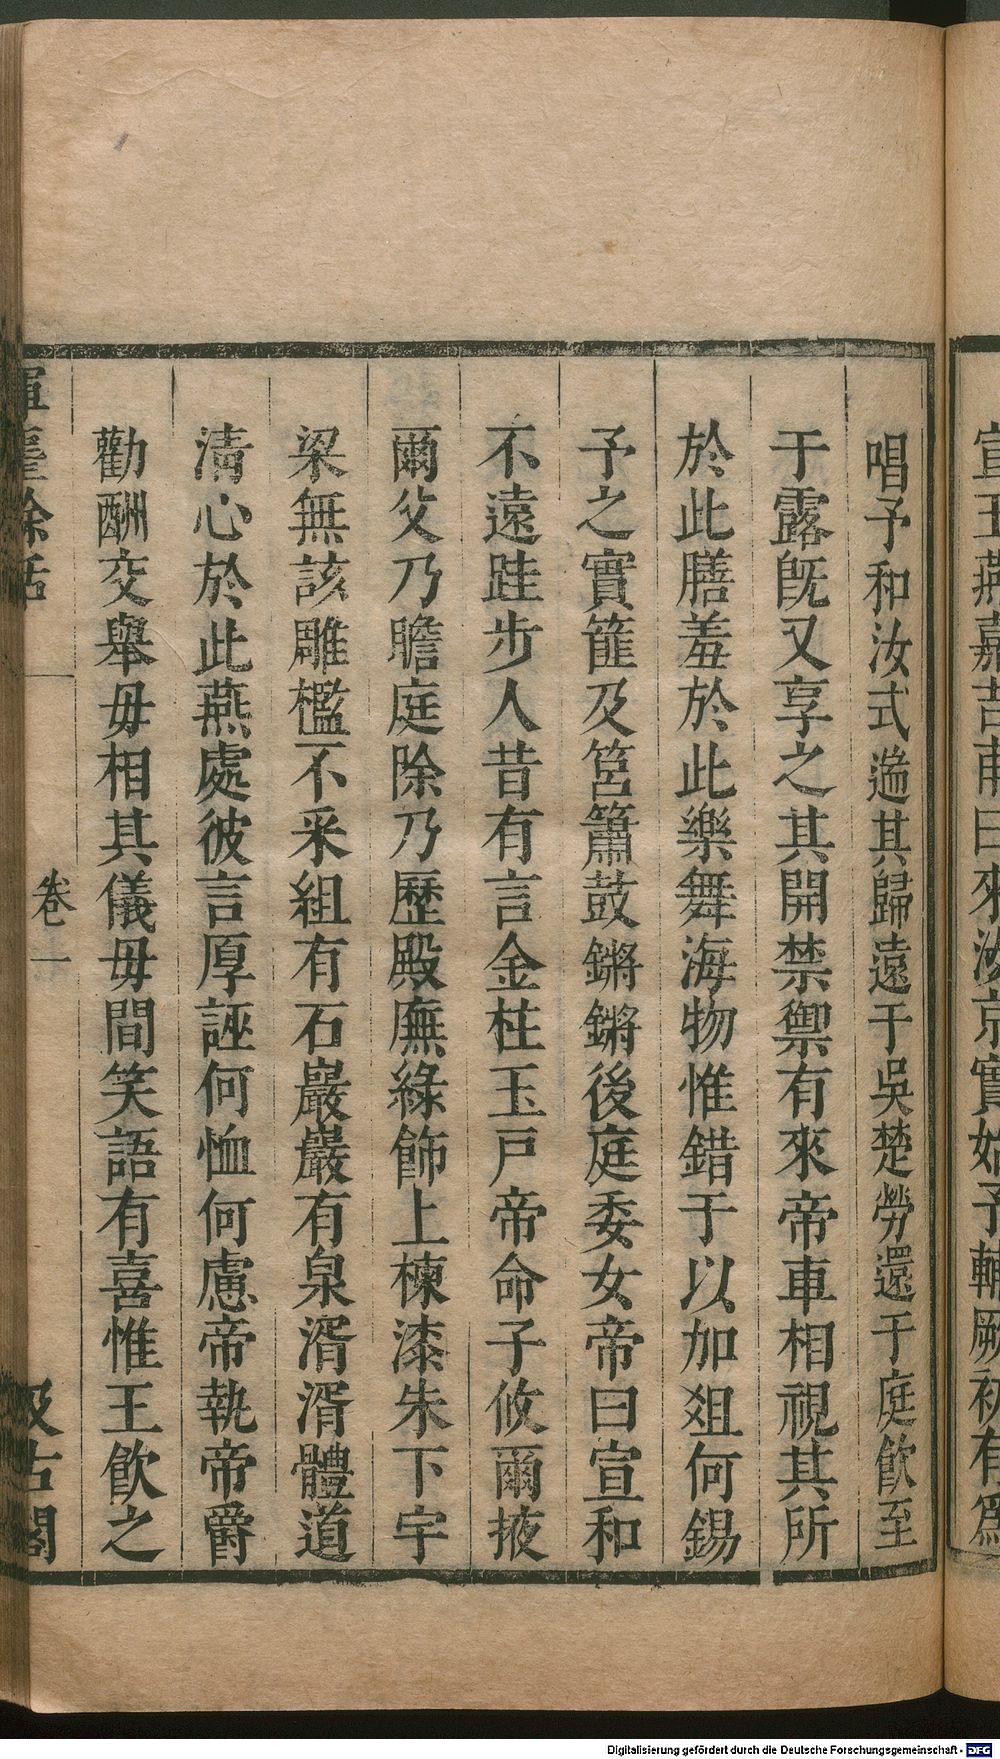 宣王燕嘉吉甫曰來汝京實始予輔厥初有爲
唱予和汝式遄其歸遠于吳楚勞還于庭飮至
于露旣又享之其開禁禦有來帝車相視其所
於此膳羞於此樂舞海物惟錯于以加爼何錫
予之實篚及筥簫鼓鏘鏘後庭委女帝曰宣和
不遠跬步人昔有言金柱玉戸帝命子攸爾掖
爾父乃瞻庭除乃歷殿廡綠飾上楝漆朱下宇
梁無該雕檻不采組有石巖巖有泉湑湑體道
淸心於此燕處彼言厚誣何恤何慮帝執帝爵
勸酬交舉毋相其儀毋間笑語有喜惟王飮之
揮麈餘話 卷一 汲古閣
Digitalisierung gefördert durch die Deutsche Forschungsgemeinschaft - DFG